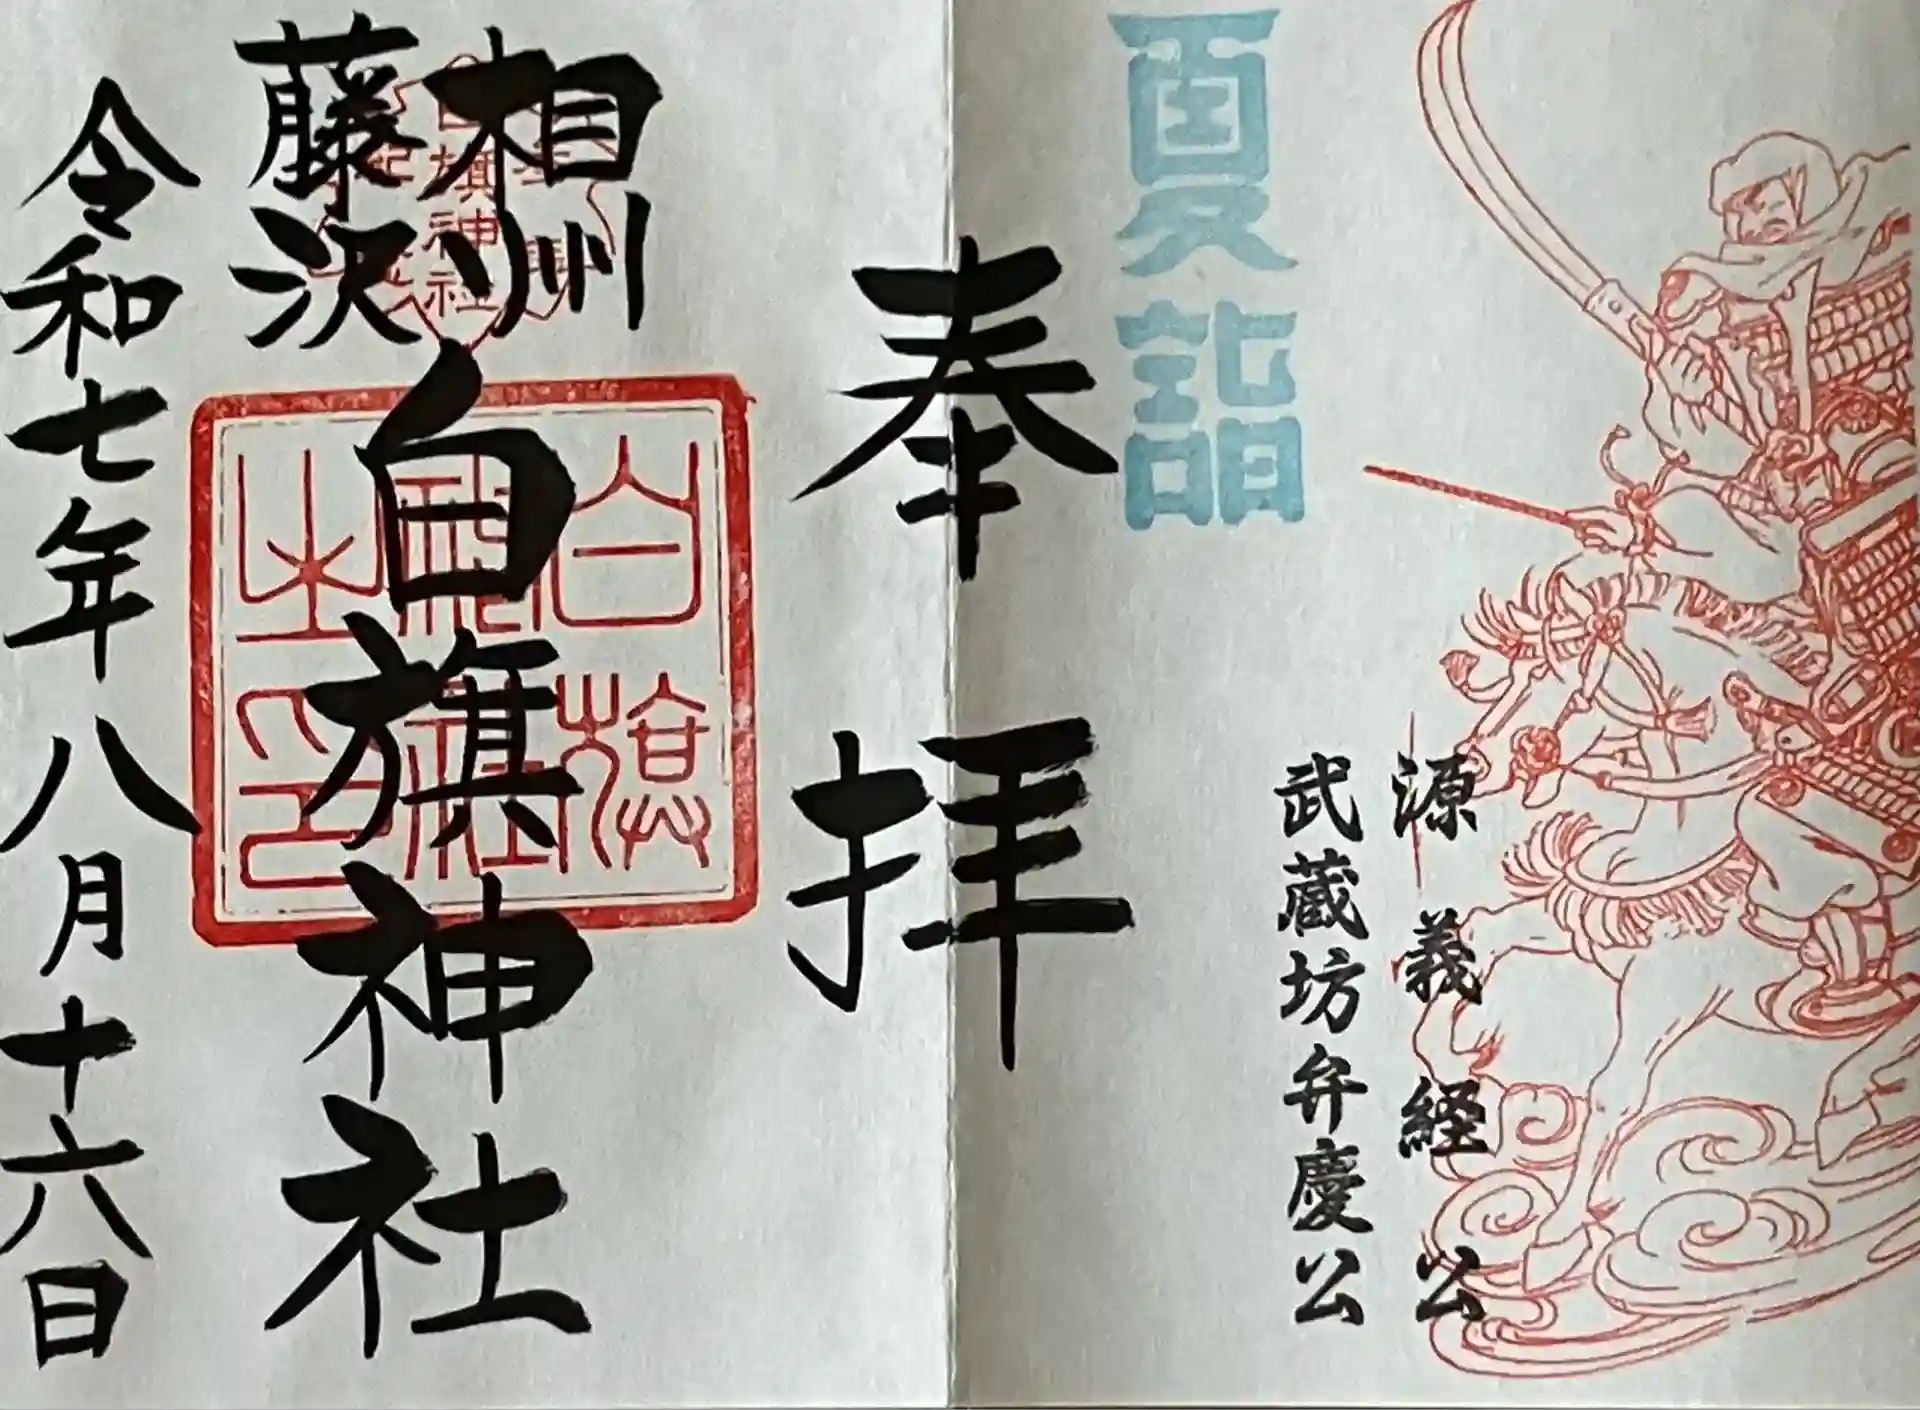 夏詣
源義経公
武蔵坊弁慶公
奉拝
相州
藤沢
白旗神社
白旗神社之印
令和七年八月十六日